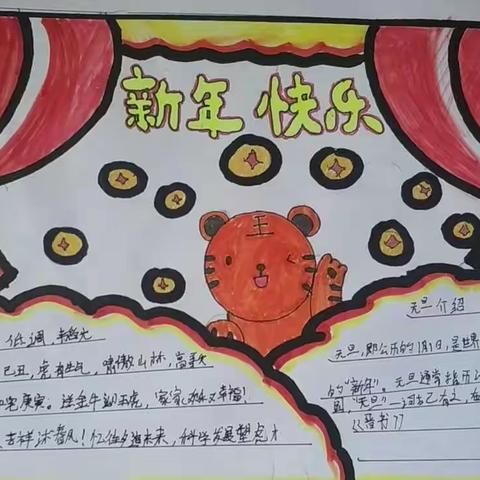 新年快乐
王
低调,
己丑,虎有生气,啸傲山林,高歌
庚寅。送金牛迎玉虎,家家欢乐又幸福!
吉祥沐春风!忆往夕追未来,科学发展塑虎才
元旦介绍
元旦,即公历的1月1日,是世界
的"新年"。元旦通常指历
"元旦"一词古已有之,在
《晋书》